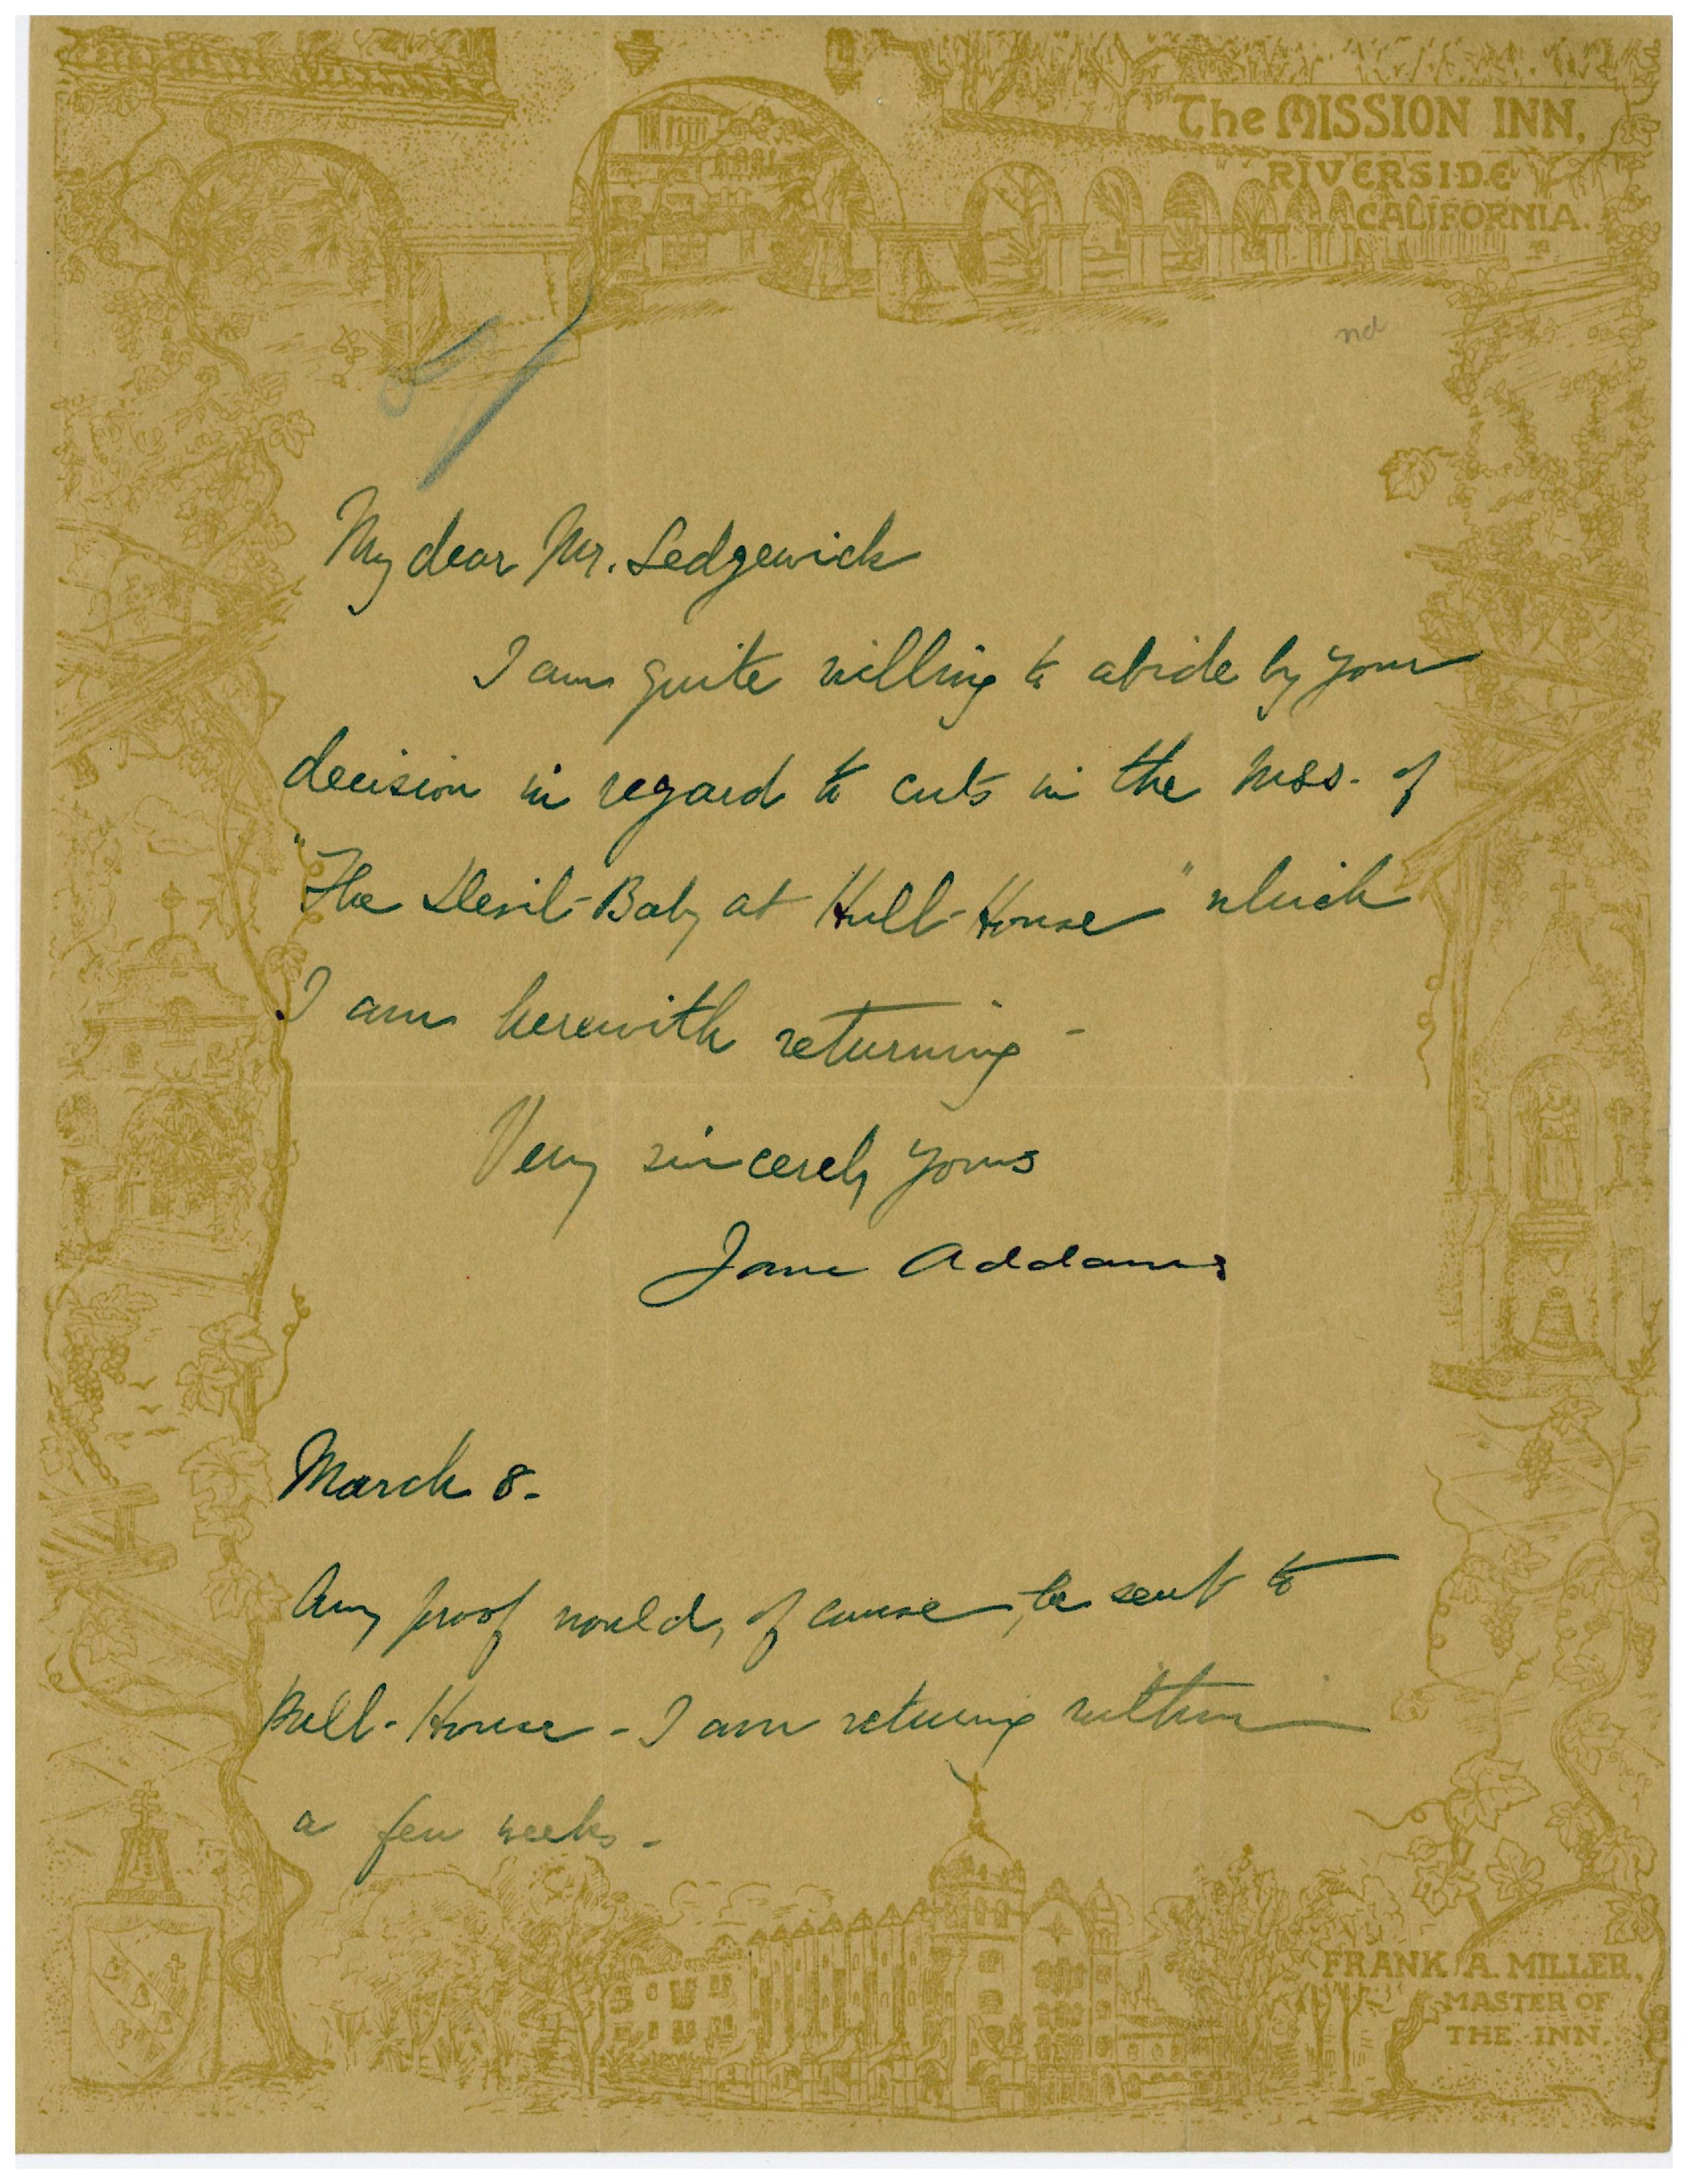 The MISSION INN,
RIVERSIDE
CALIFORNIA.
nd
My dear Mr. Sedgewick
I am quite willing to abide by your
decision in regard to cuts in the mss. of
"The Devil-Baby at Hull-House" which
I am herewith returning -
Very sincerely yours
Jane Addams
March 8.
Any proof would, of course, be sent to
Hull-House - I am returning within
a few weeks -
FRANK A. MILLER,
MASTER OF
THE INN.